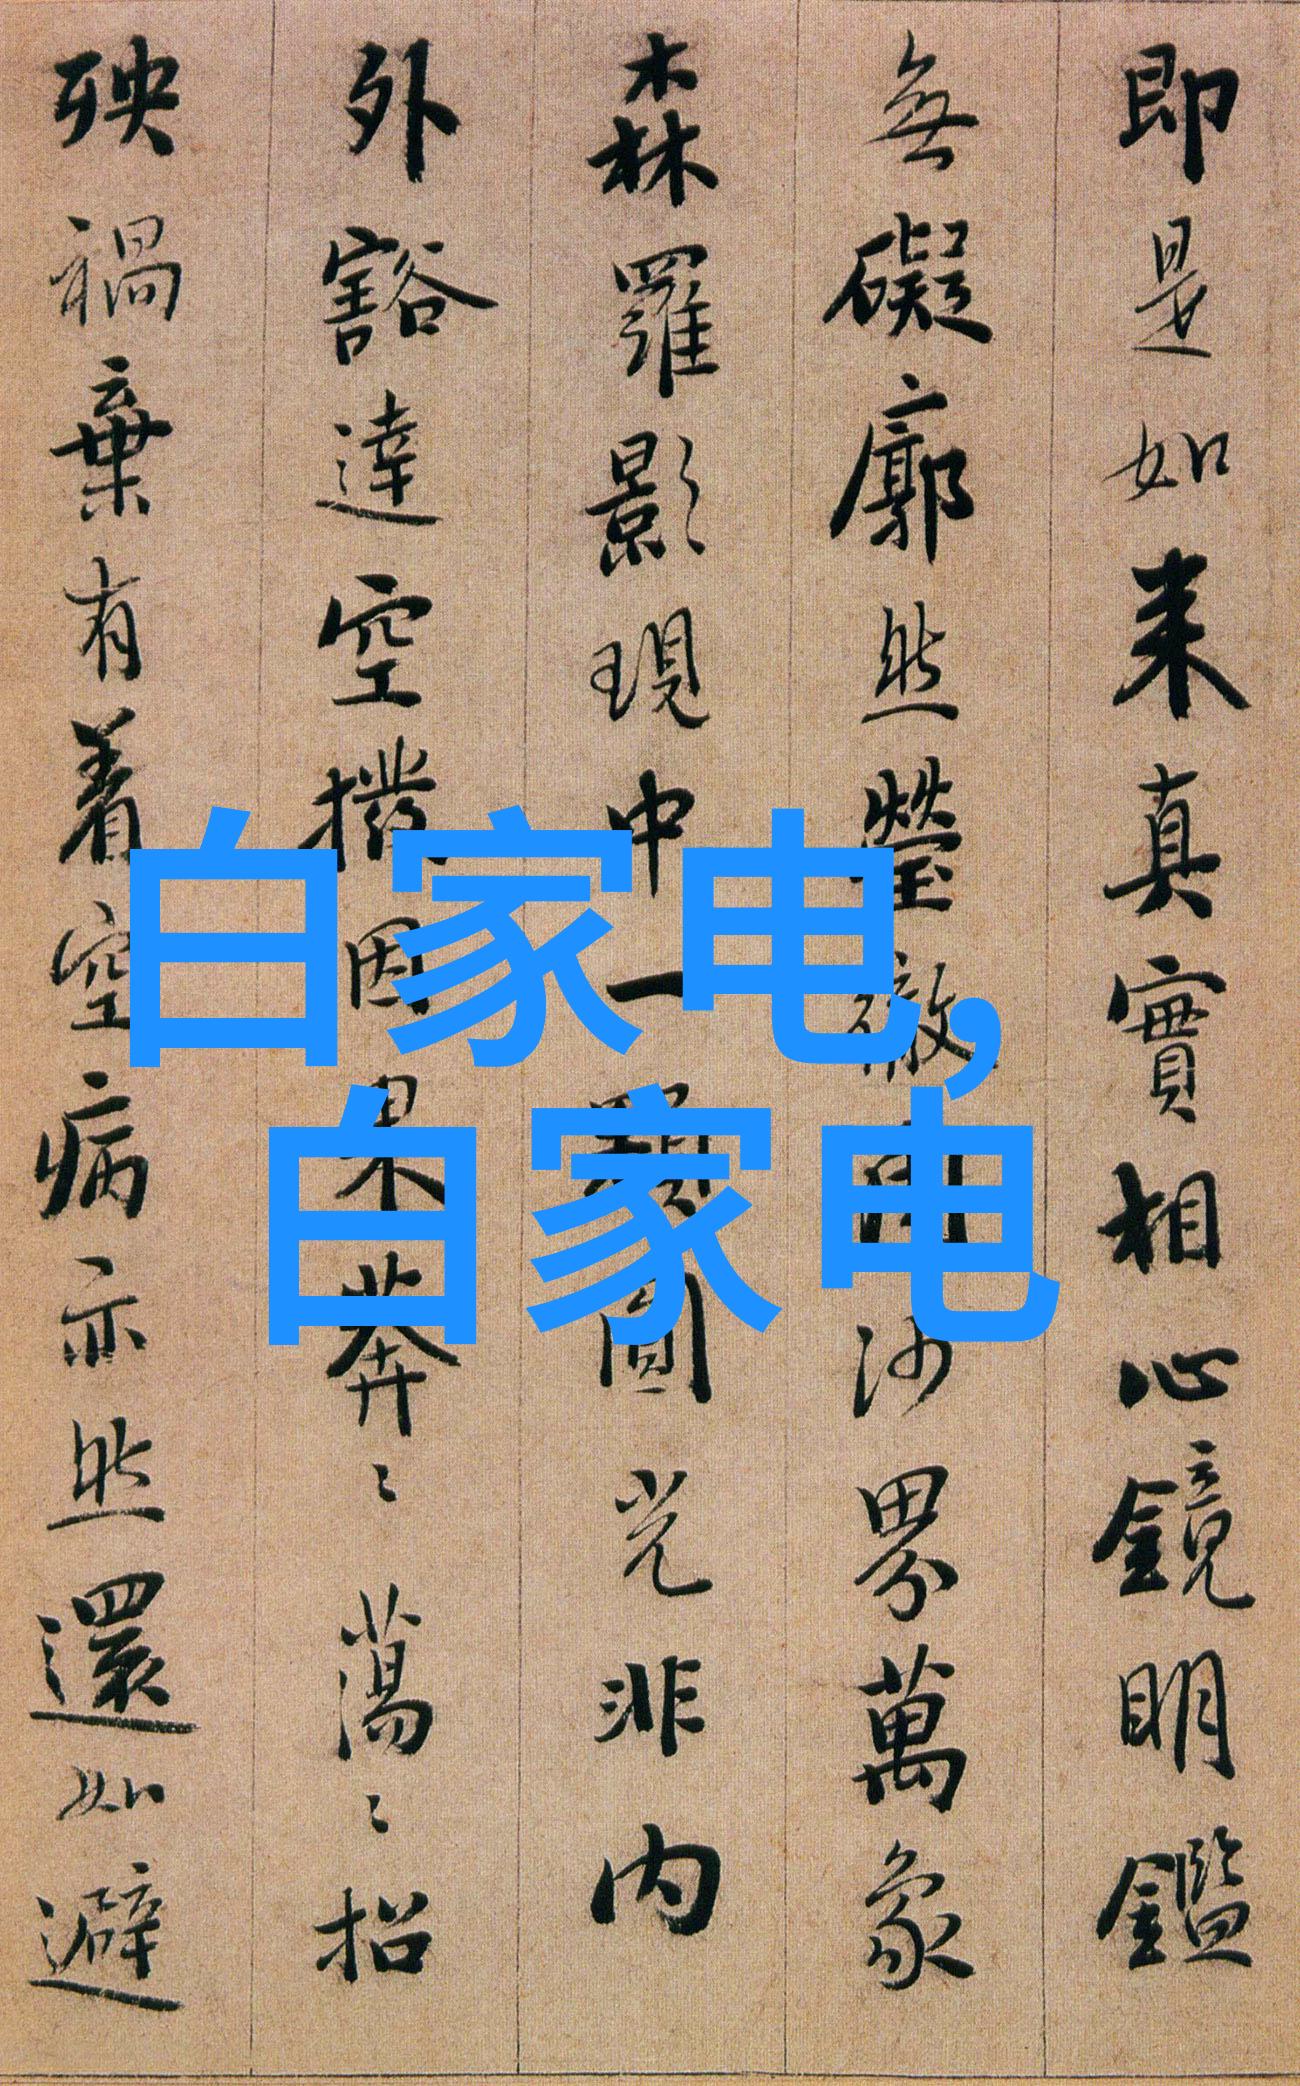 即是如来真實相心鏡明鑑
無礙廓然瑩徹周沙界萬象
森羅影現中一顆圓光非内
外豁達空撥因果莽〻蕩〻招
殃禍棄有着空病亦然還如避
白家电,
白家电